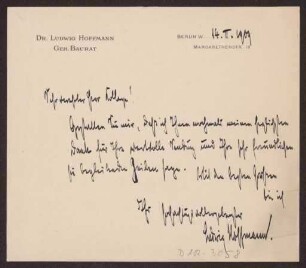 DR. LUDWIG HOFFMANN
GEH. BAURAT
BERLIN W. 14. II. 1909
MARGARETHENSTR. 18
Sehr verehrter Herr Kollege!
Gestatten Sie mir, daß ich Ihnen nochmals meinen herzlichsten
Dank für Ihre wertvolle Sendung und Ihre sehr freundlichen
sie begleitenden Zeilen sage. Mit den besten Grüßen
bin ich
Ihr hochachtungsvoll ergebener
Ludwig Hoffmann.